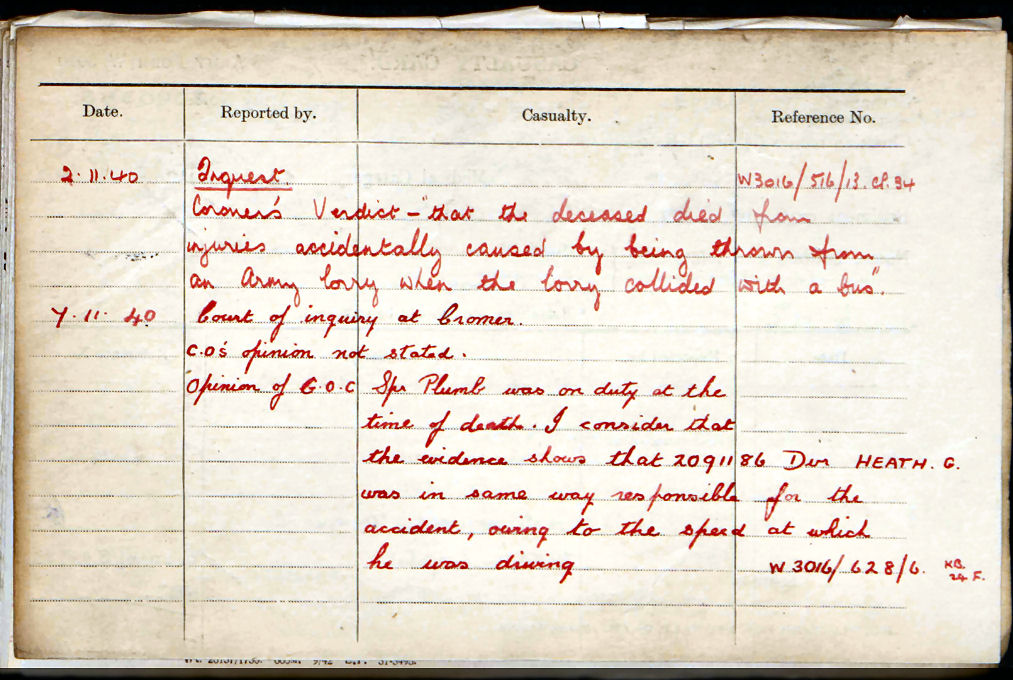 Date. Reported by. Casualty. Reference No.
2.11.40 Inquest. W3016/516/13. CP. 94
Coroner's Verdict - "that the deceased died from
injuries accidentally caused by being thrown from
an Army lorry when the lorry collided with a bus".
7.11.40 Court of inquiry at Cromer.
C.O's opinion not stated.
Opinion of G.O.C Spr Plumb was on duty at the
time of death. I consider that
the evidence shows that 2091186 Dvr HEATH. G.
was in same way responsible for the
accident, owing to the speed at which
he was driving W3016/628/6. KB.
24 F.